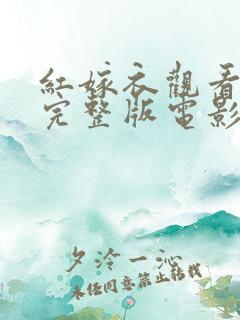 紅嫁衣觀看
完整版電影
夕泠一沁
未经同意禁止转载